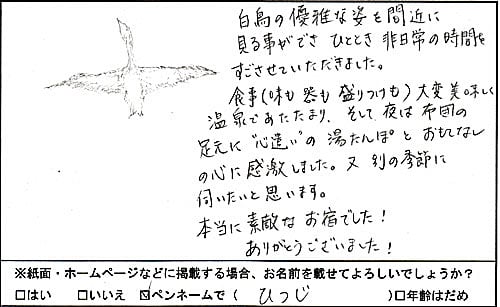 白鳥の優雅な姿を間近に
見る事ができ ひととき 非日常の時間を
すごさせていただきました。
食事(味も 器も 盛りつけも) 大変美味しく
温泉であたたまり、そして 夜は 布団の
足元に "心遣い" の 湯たんぽ と おもてなし
の心に感激しました。又 別の季節に
伺いたいと 思います。
本当に 素敵な お宿でした!
ありがとうございました!
※紙面・ホームページなどに掲載する場合、お名前を載せてよろしいでしょうか?
□はい □いいえ ☑ペンネームで ( ひつじ ) □年齢はだめ